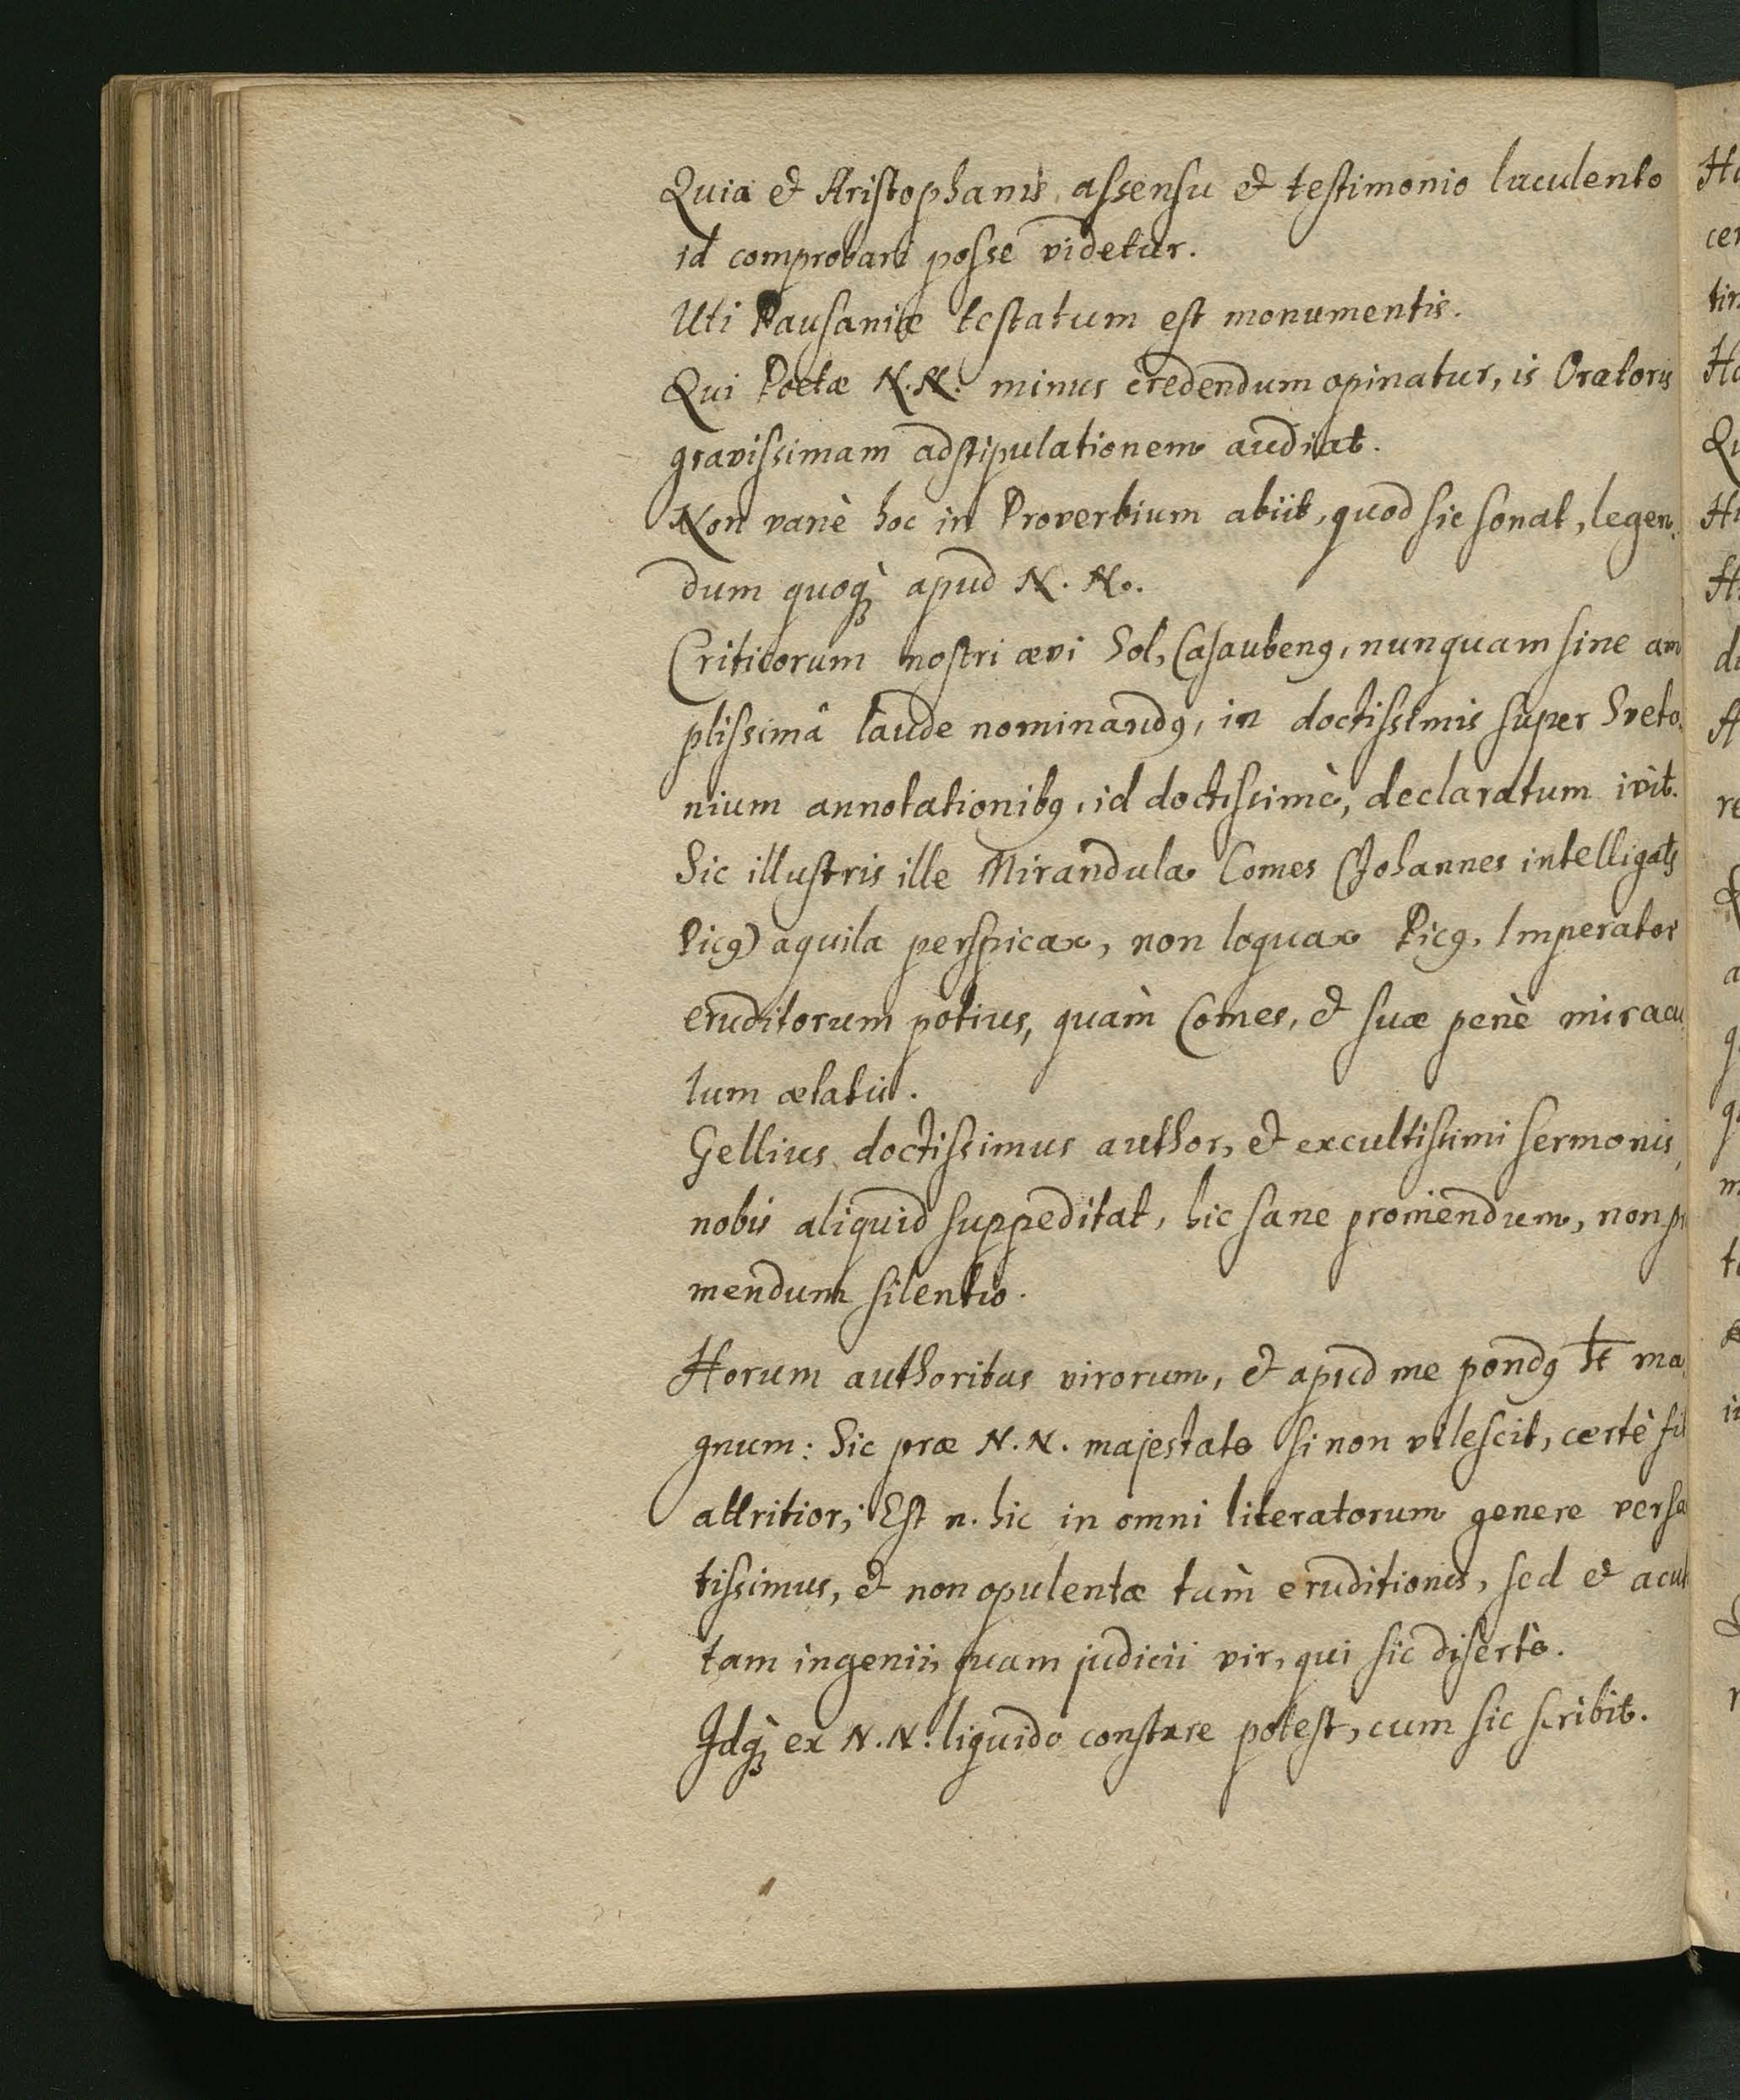 Quia et Aristophanis assensu et testimonio luculento
id comprobari posse videtur.
Uti Pausaniæ testatum est monumentis.
Qui Poetæ N.N. minus credendum opinatur, is Oratoris
gravissimam adstipulationem audiat.
Non vanè hoc in Proverbium abiit, quod sic sonat, legen,
dum quoq; apud N. N.
Criticorum nostri ævi Sol, Casauben9, nunquam sine am
plissimâ laude nominand9, in doctissimis super Sveto,
nium annotationib9, id doctissimè, declaratum ivit.
Sic illustris ille Mirandula Comes (Johannes intelligats
Pic9) aquila perspicax, non loquax Pic9, Imperator
eruditorum potius, quàm Comes, et suæ penè miracu
lum ætatis.
Gellius doctissimus author, et excultissimi sermonis,
nobis aliquid suppeditat, hic sane promendum, non pr
mendum silentio.
Horum authoritas virorum, et apud me pond9 ht ma,
gnum: Sic præ N.N. majestate si non vilescit, certè fit
attritior; Est n. hic in omni literatorum genere versa
tissimus, et non opulentæ tùm eruditionis, sed et acut
tam ingenii, quam judicii vir, qui sic disertè.
Idq; ex N.N. liquido constare potest, cum sic scribit.